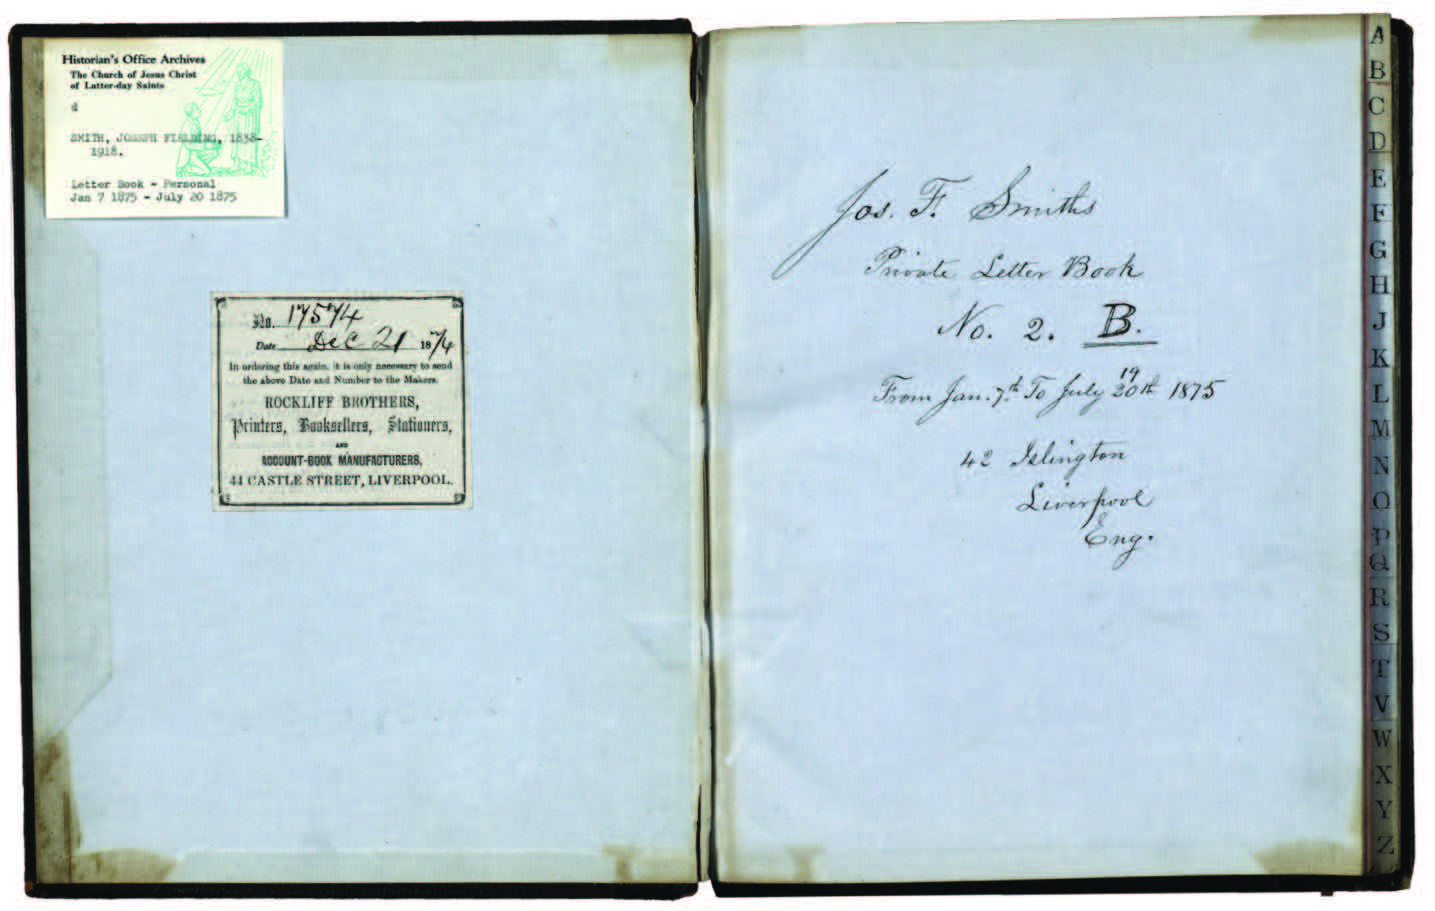 Historian's Office Archives
The Church of Jesus Christ
of Latter-day Saints
d
SMITH, JOSEPH FIELDING, 1838-
1918.
Letter Book - Personal
Jan 7 1875 - July 20 1875
No. 17574
Date Dec 21 1874
In ordering this again, it is only necessary to send
the above Date and Number to the Makers.
ROCKLIFF BROTHERS,
Printers, Booksellers, Stationers,
AND
ACCOUNT-BOOK MANUFACTURERS,
44 CASTLE STREET, LIVERPOOL.
Jos. F. Smiths
Private Letter Book
No. 2. B.
19
From Jan. 7th To July 20th 1875
42 Islington
Liverpool
Eng.
A
B
C
D
E
F
G
H
J
K
L
M
N
O
P
Q
R
S
T
V
W
X
Y
Z